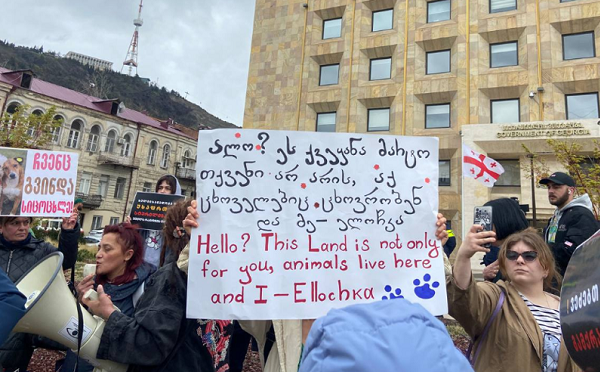 ალო? ეს ქვეყანა მარტო
თქვენი არ არის, აქ
ცხოველებიც ცხოვრობენ
და მე-ელოჩკა
Hello? This Land is not only
for you, animals live here
and I – Ellochka
ჩვენც
გვინდა
სიცოცხლე
GOVERNMENT OF GEORGIA